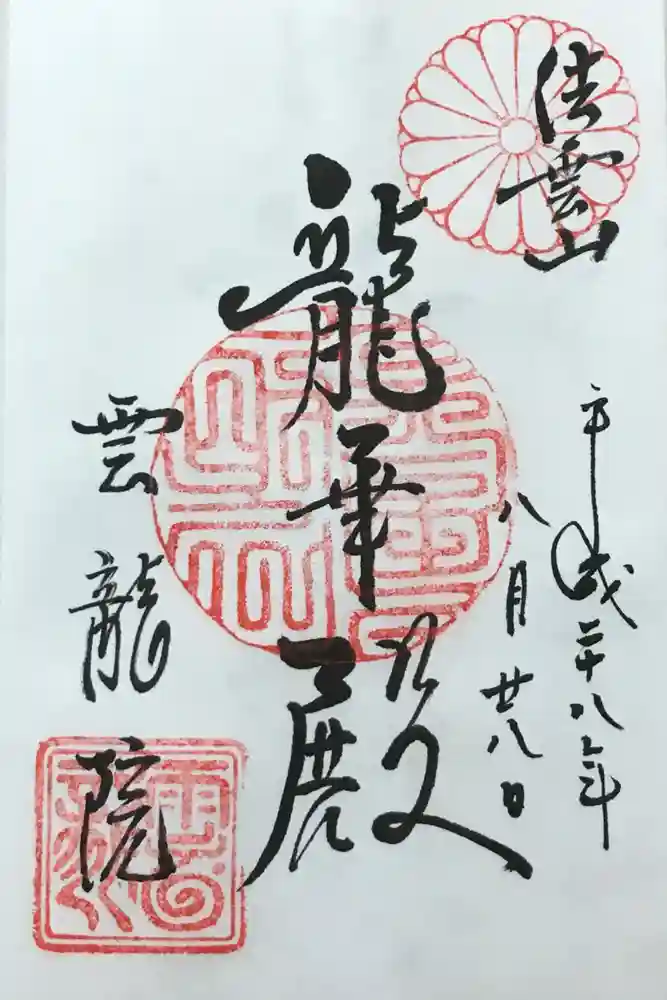 雲山
平成二十八年
八月廿八日
龍華殿
雲龍院